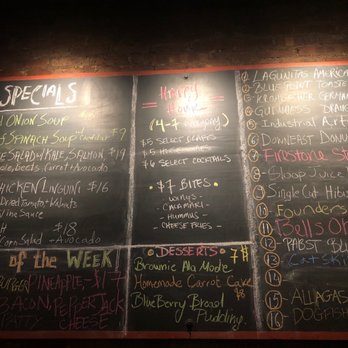 SPECIALS
ONION SOUP
SPINACH SOUP w/ cheddar $9
SALAD of KALE, SALMON, $19
Beets, Carrot + Avocado
CHICKEN LINGUNI $16
Tomato + Walnuts
Wine Sauce
$18
Salad + Avocado
of the WEEK
BURGER PINEAPPLE - $17
BACON PEPPER JACK
PATTY CHEESE
Happy
Hour
(4-7 everyday)
$5 SELECT
$6 SELECT COCKTAILS
$7 BITES
WINGS
CALAMARI
HUMMUS
CHEESE FRIES
DESSERTS 7$
Brownie Ala Mode
Homemade Carrot Cake $8
BlueBerry Bread
Pudding
LAGUNITAS AMERICA
BLUE POINT TOAST
GUINNESS DRAUG
Industrial Art
DOWNEAST DONU
Firestone St
Sloop Juice
Single Cut Hibi
Founders
Bells Ob
PABST BLU
Cat Ski
15 ALLAGAS
16 DOGFISH